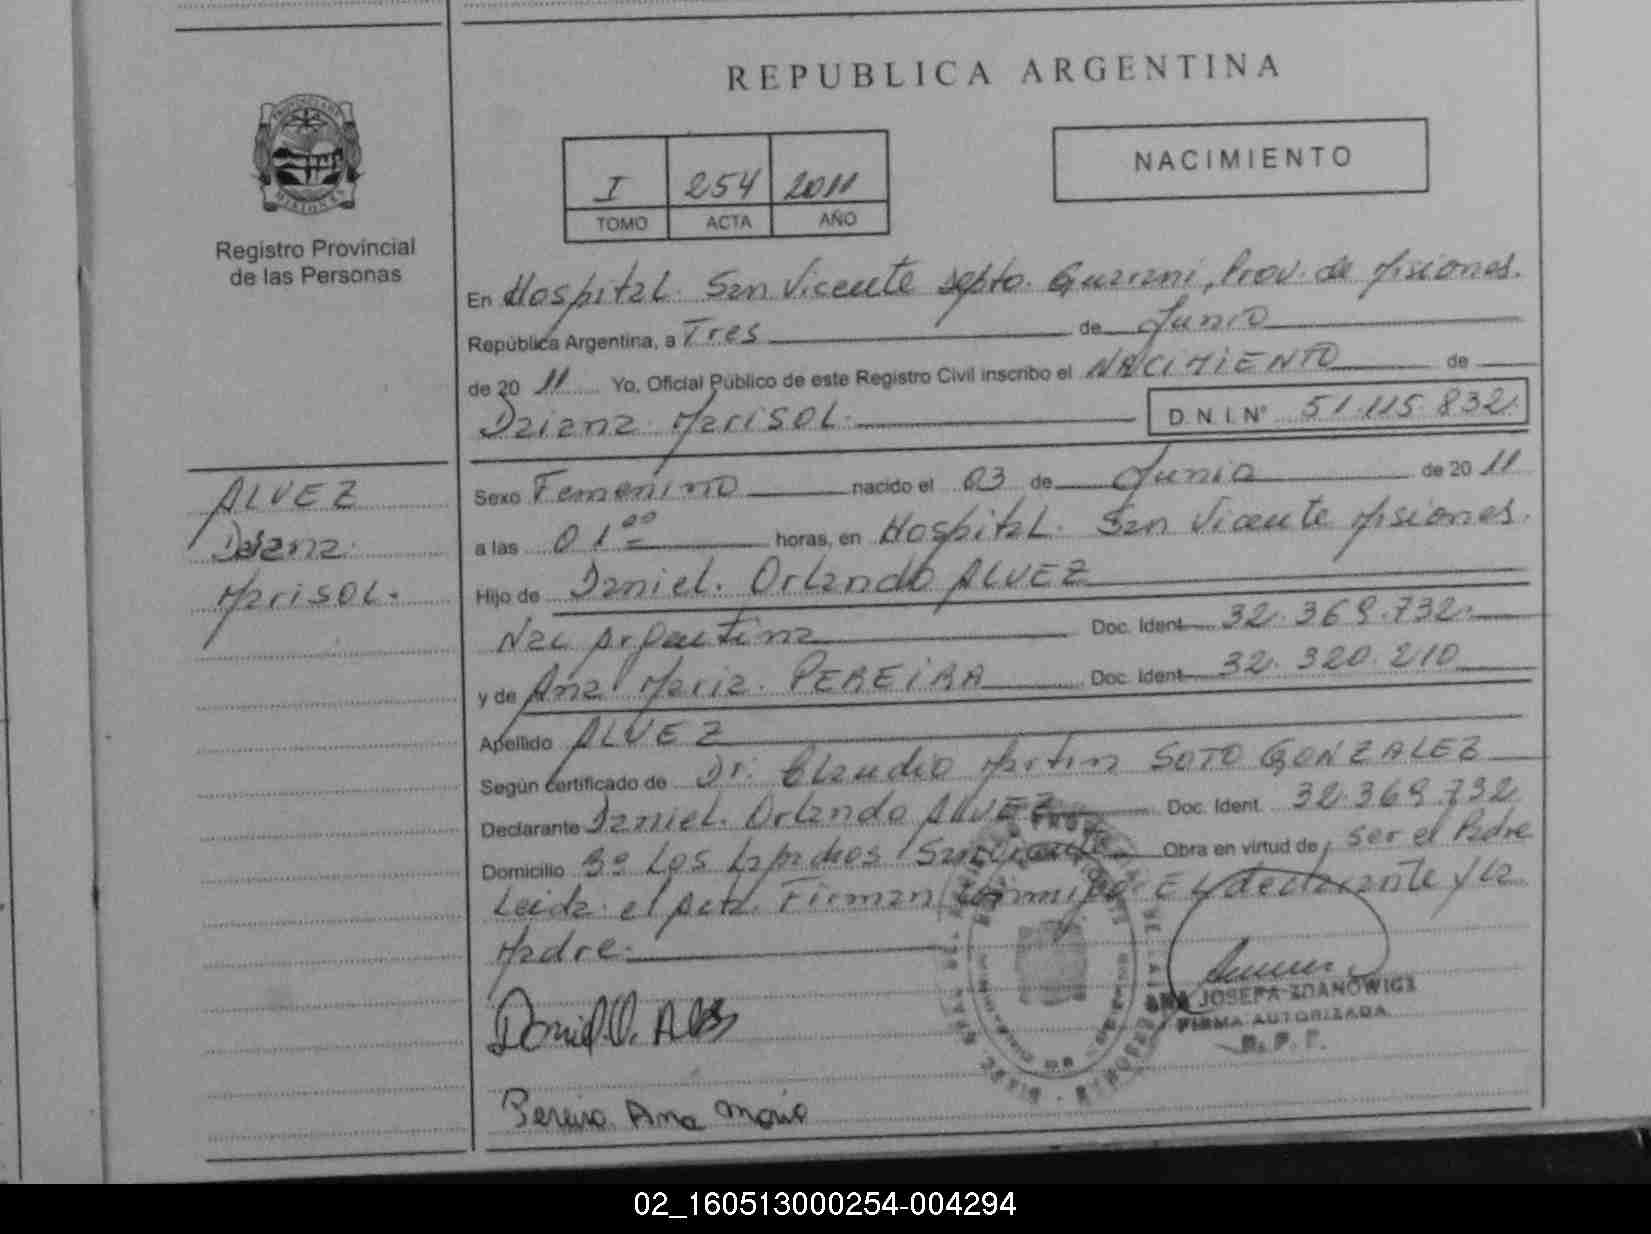 REPUBLICA ARGENTINA
I 254 2011
TOMO ACTA AÑO
NACIMIENTO
Registro Provincial
de las Personas
En Hospital. San Vicente Dpto. Guarani, Prov. de Misiones.
República Argentina, a Tres de Junio
de 2011 Yo, Oficial Público de este Registro Civil inscribo el NACIMIENTO de
Daiana Marisol. D. N. I. Nº 51.115.832
ALVEZ
Daiana
Marisol.
Sexo Femenino nacido el 03 de Junio de 2011
a las 01 00 horas, en Hospital. San Vicente Misiones.
Hijo de Daniel. Orlando ALVEZ
Nac Argentina Doc. Ident. 32.369.732
y de Ana Maria. PEREIRA Doc. Ident. 32.320.210
Apellido ALVEZ
Según certificado de Dr. Claudio Martin SOTO GONZALEZ
Declarante Daniel. Orlando ALVEZ Doc. Ident. 32.369.732
Domicilio Bº Los Lapachos San Vicente Obra en virtud de ser el Padre
Leida el Acta. Firman conmigo El declarante y la
Madre.
Daniel O. Alves
ANA JOSEFA ZDANOWICZ
FIRMA AUTORIZADA
R. P. P.
Pereira Ana Maria
02_160513000254-004294